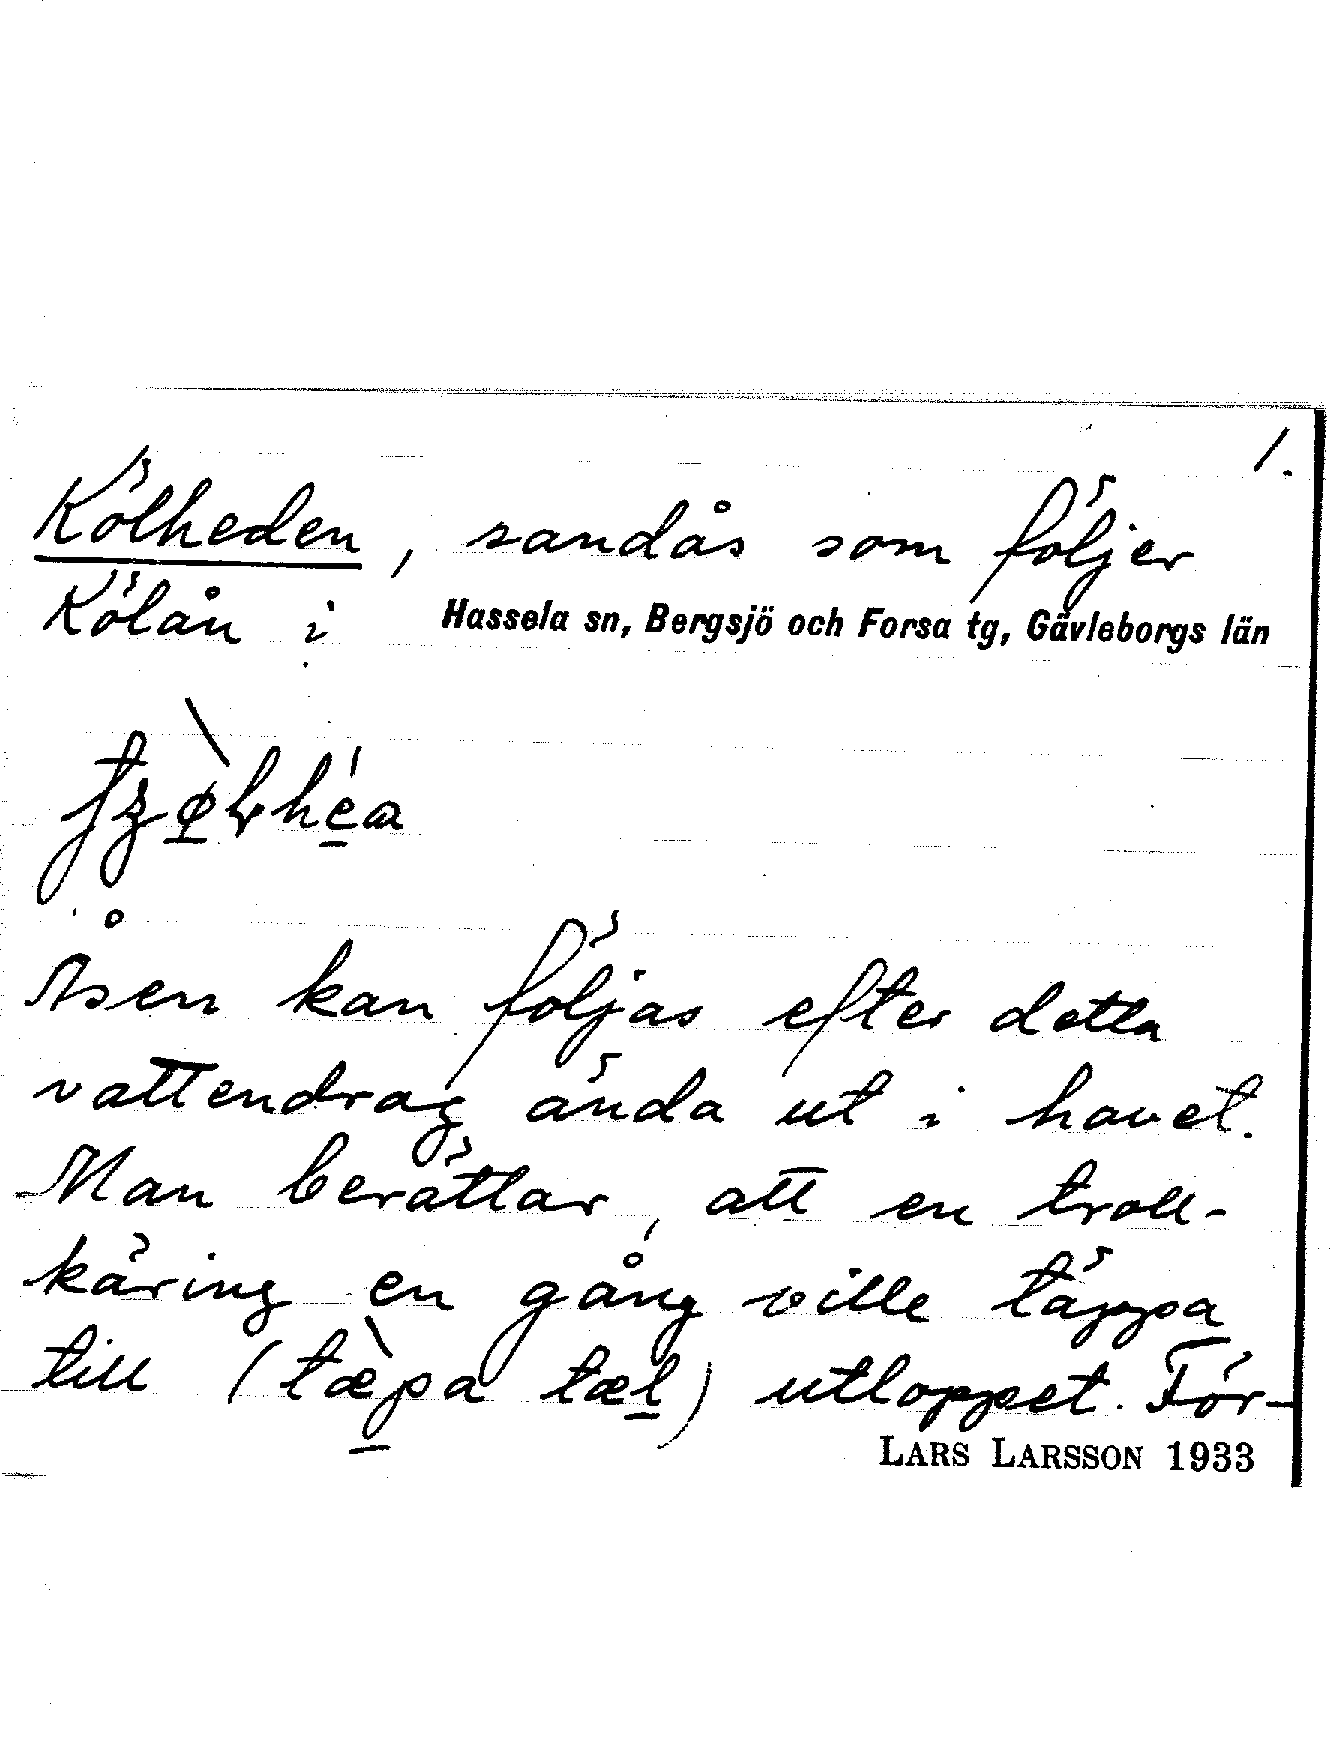 1.
Kölheden, sandås som följer
Kölån i Hassela sn, Bergsjö och Forsa tg, Gävleborgs län
Åsen kan följas efter detta
vattendrag ända ut i havet.
Man berättar, att en troll-
käring en gång ville täppa
till (tæ̀pa tæl) utloppet. För-
LARS LARSSON 1933